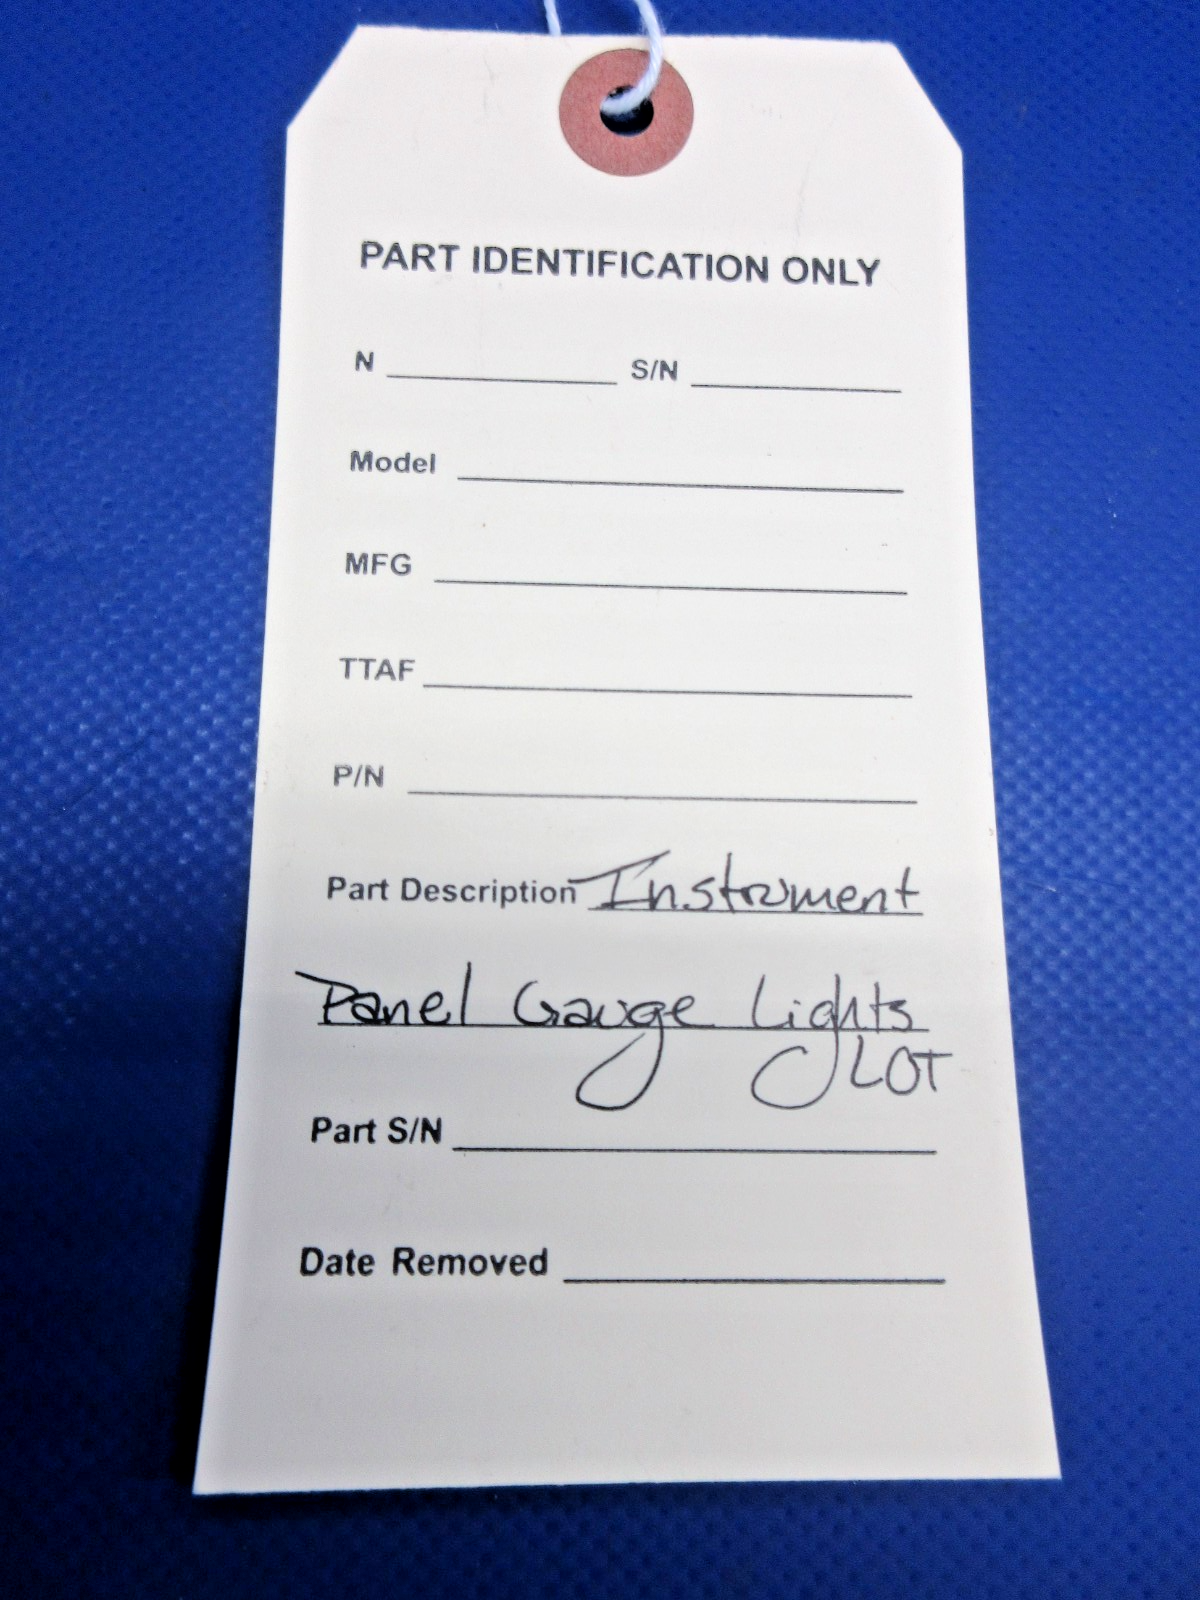 PART IDENTIFICATION ONLY
N S/N
Model
MFG
TTAF
P/N
Part Description Instrument
Panel Gauge Lights
LOT
Part S/N
Date Removed